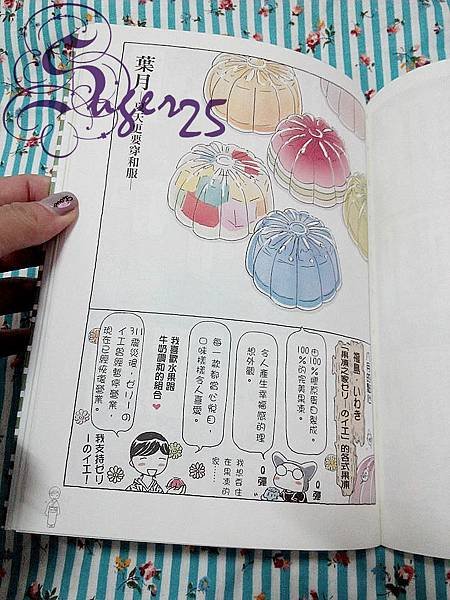 Suger25
葉月
夏天更要穿和服——
福島 いわき
「果凍之家ゼリーのイエ」的各式果凍
由100%膠原蛋白製成。
100%的完美果凍。
Q彈
Q彈
令人產生幸福感的理
想外觀。
我想住
在果凍的
家……
每一款都賞心悅目,
口味樣樣令人喜愛。
我喜歡水果跟
牛奶調和的組合♥
311震災後,ゼリーの
イエ曾經暫停營業,
現在已經恢復營業。
我支持ゼリ
ーのイエ!